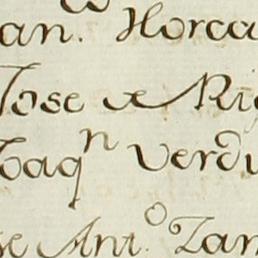 an. Horca
Jose de Rig
Joaqn Verdu
se Anto. Zam